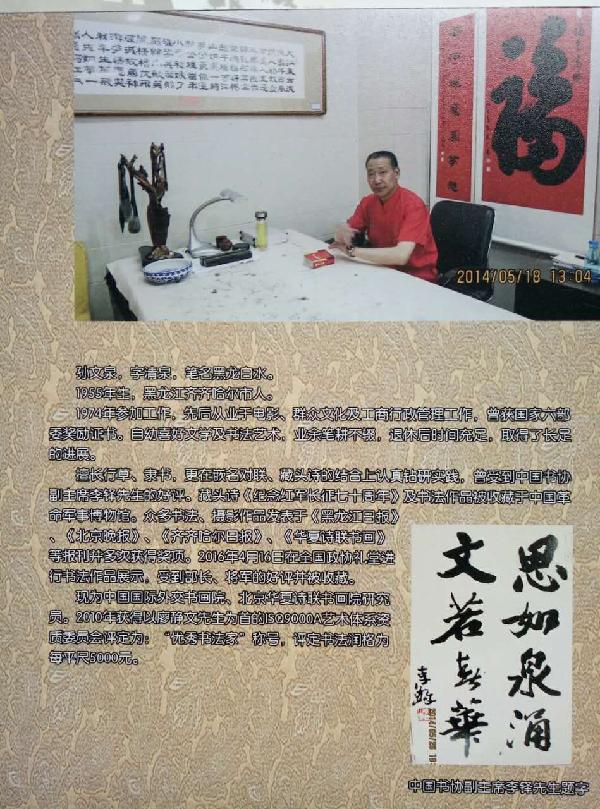 福
2014/05/18 13:04
孙文泉，字清泉，笔名黑龙白水。
1955年生，黑龙江齐齐哈尔市人。
1974年参加工作，先后从业于电影、群众文化及工商行政管理工作，曾获国家六部
委奖励证书。自幼喜好文学及书法艺术，业余笔耕不辍，退休后时间充足，取得了长足
的进展。
擅长行草、隶书，更在嵌名对联、藏头诗的结合上认真钻研实践，曾受到中国书协
副主席李铎先生的好评。藏头诗《纪念红军长征七十周年》及书法作品被收藏于中国革
命军事博物馆。众多书法、摄影作品发表于《黑龙江日报》
、《北京晚报》、《齐齐哈尔日报》、《华夏诗联书画》
等报刊并多次获得奖项。2016年4月16日在全国政协礼堂进
行书法作品展示，受到部长、将军的好评并被收藏。
现为中国国际外交书画院、北京华夏诗联书画院研究
员。2010年获得以廖静文先生为首的ISO9000A艺术体系资
质委员会评定为：“优秀书法家”称号，评定书法润格为
每平尺5000元。
思如泉涌
文若春华
李铎
中国书协副主席李铎先生题字